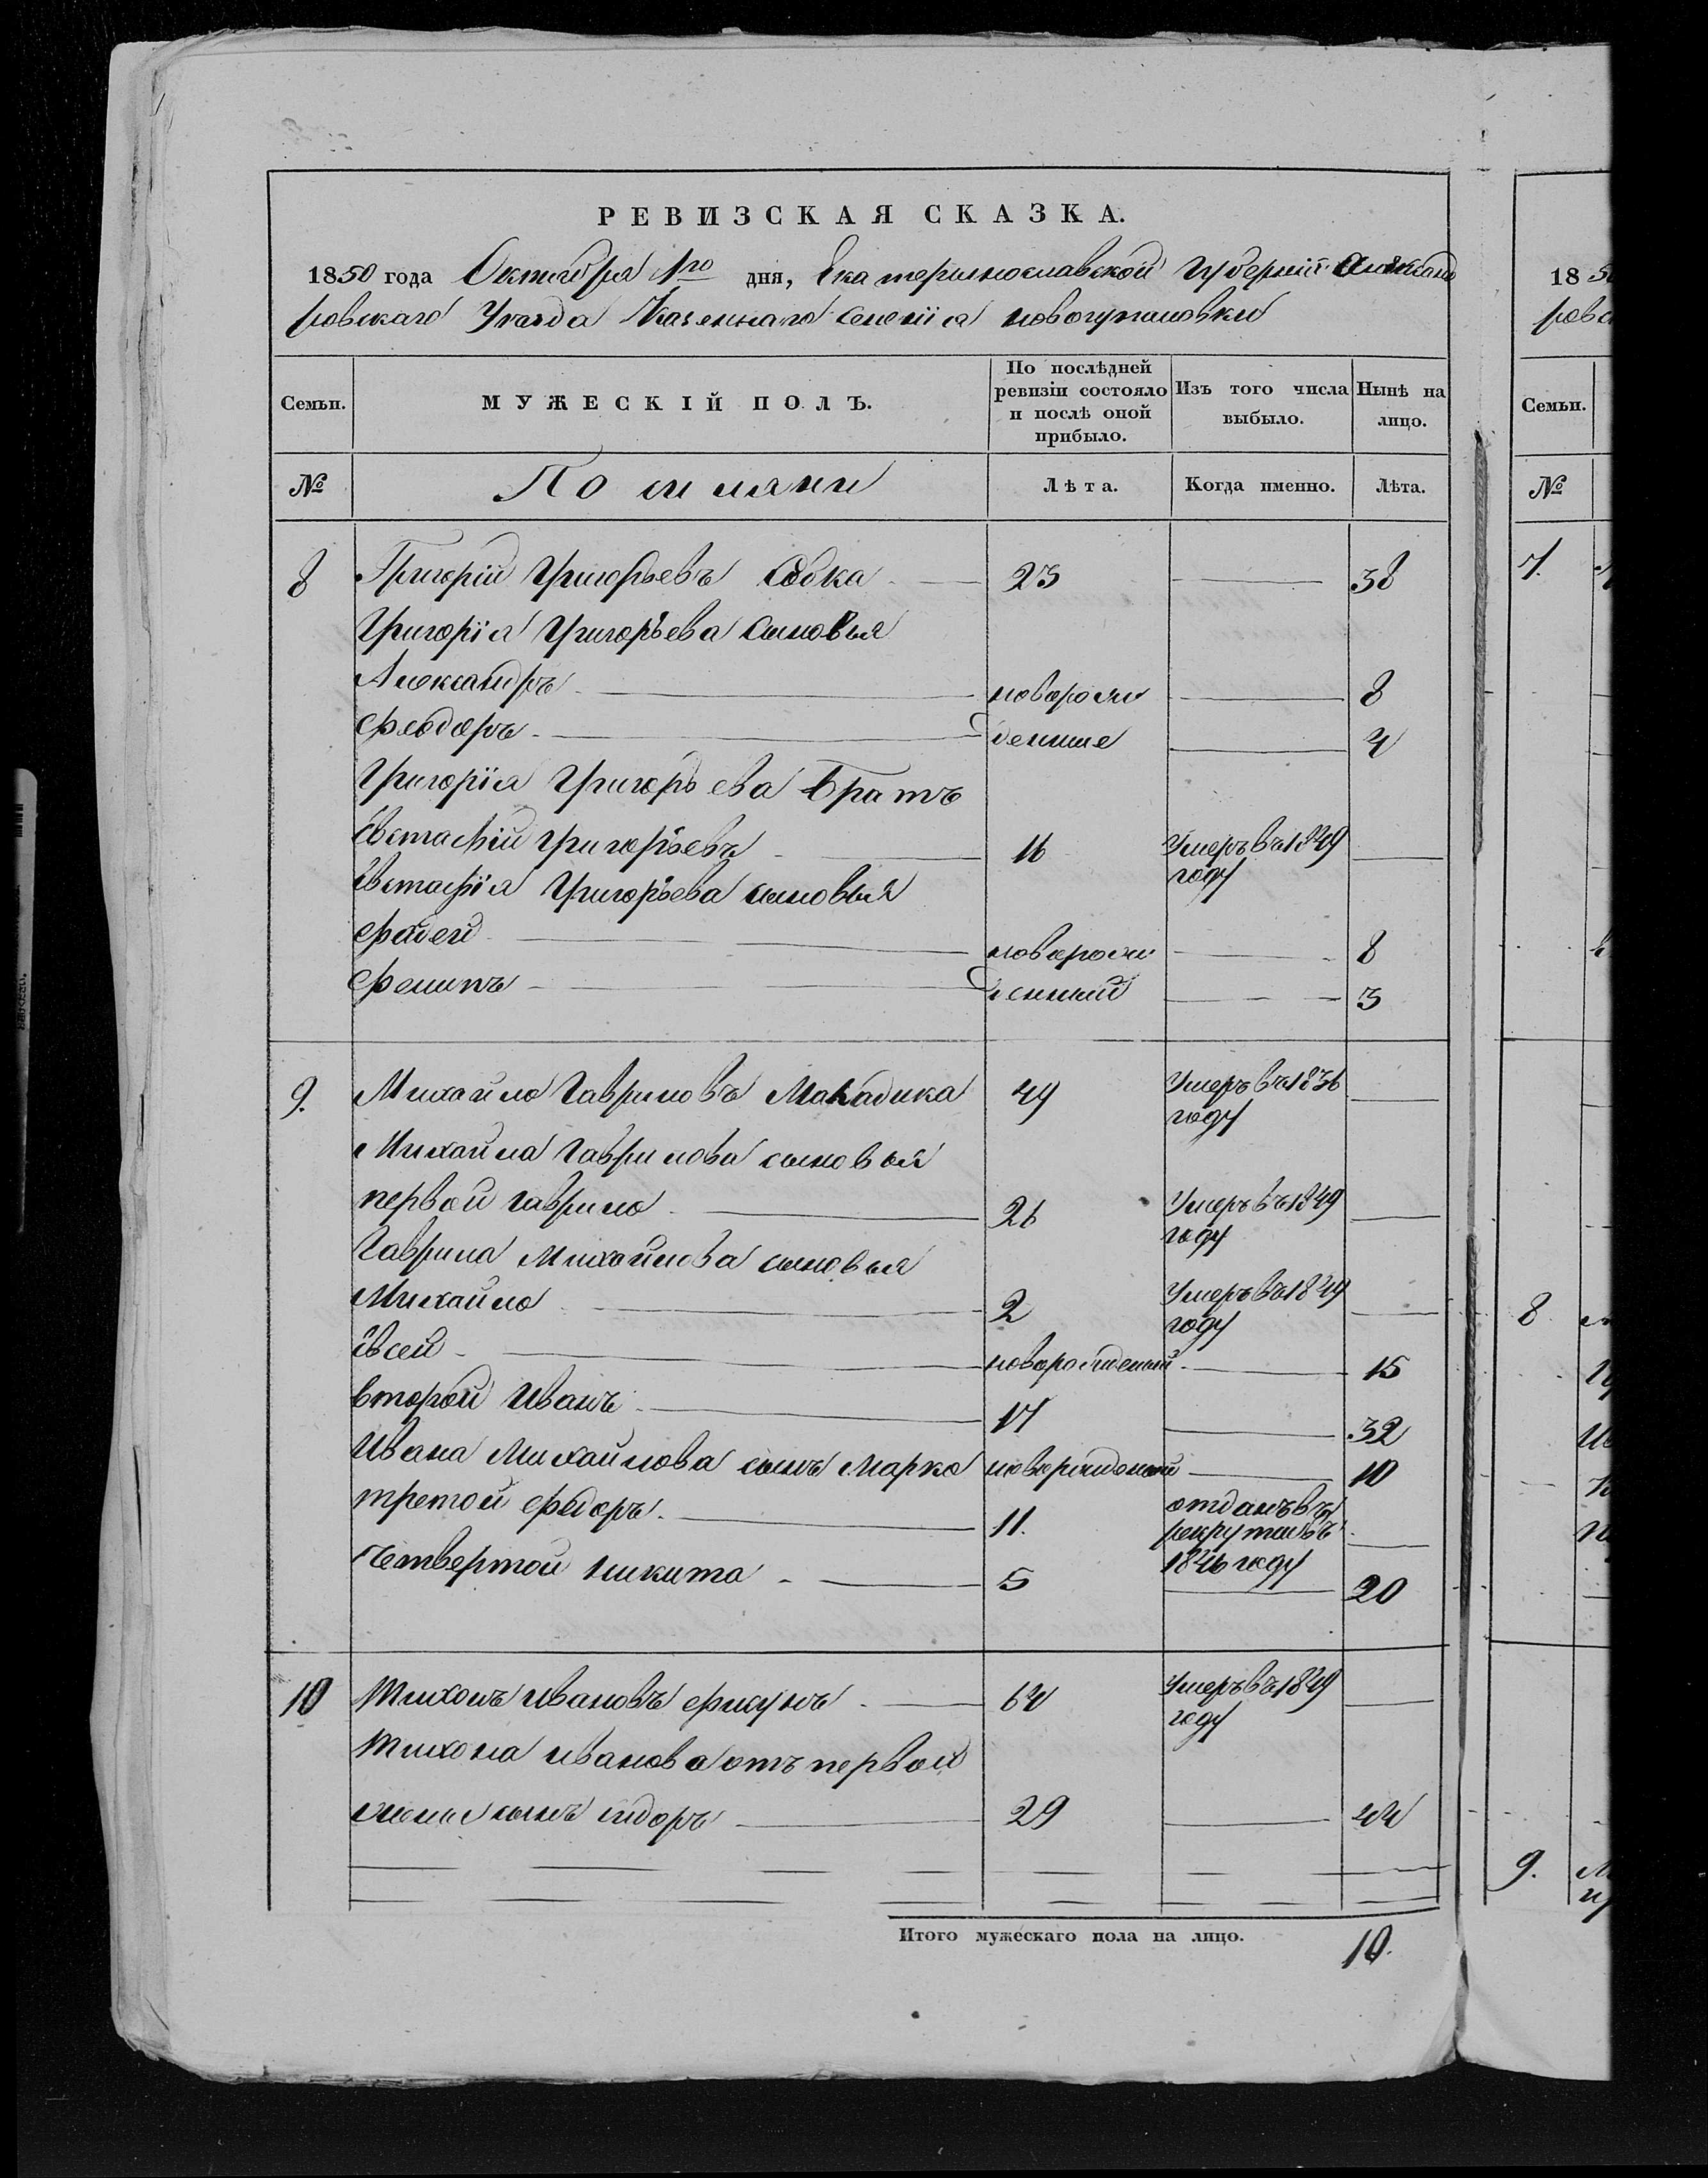 РЕВИЗСКАЯ СКАЗКА.
1850 года Октября 1го дня, Екатеринославской Губерніи Александ
ровскаго Уезда Казеннаго селенія новогупаловки
Семьи. МУЖЕСКІЙ ПОЛЪ. По послѣдней ревизіи состояло и послѣ оной прибыло. Изъ того числа выбыло. Нынѣ на лицо.
№ Лѣта. Когда именно. Лѣта.
8 Григорій Григорьевъ 23 38
Григорія Григорьева сыновья
Александръ новорож 8
Феодоръ денные 4
Григорія Григорьева Братъ
Евстафій Григорьевъ 16 Умеръ в 1849
году
Евстафія Григорьева сыновья
Фадей новорож 8
Филипъ денный 3
9. Михайло Гавриловъ Макадика 49 Умеръ в 1836
году
Михайла Гаврилова сыновья
первой гаврило 26 Умеръ въ 1849
году
Гаврила Михайлова сыновья
Михайло 2 Умеръ в 1849
году
Евсей новорожденый 15
второй Иванъ 17 32
Ивана Михайлова сынъ Марко новорожденый 10
третой Федоръ 11. отданъ въ
рекруты въ
1846 году
Четвертой никита 5 20
10 Тихонъ ивановъ фисунъ 64 Умеръ в 1849
году
Тихона иванова отъ первой
жены сынъ сидоръ 29 44
Итого мужескаго пола на лицо. 10.
18 50
ровс
Семьи.
№
7.
8
9.